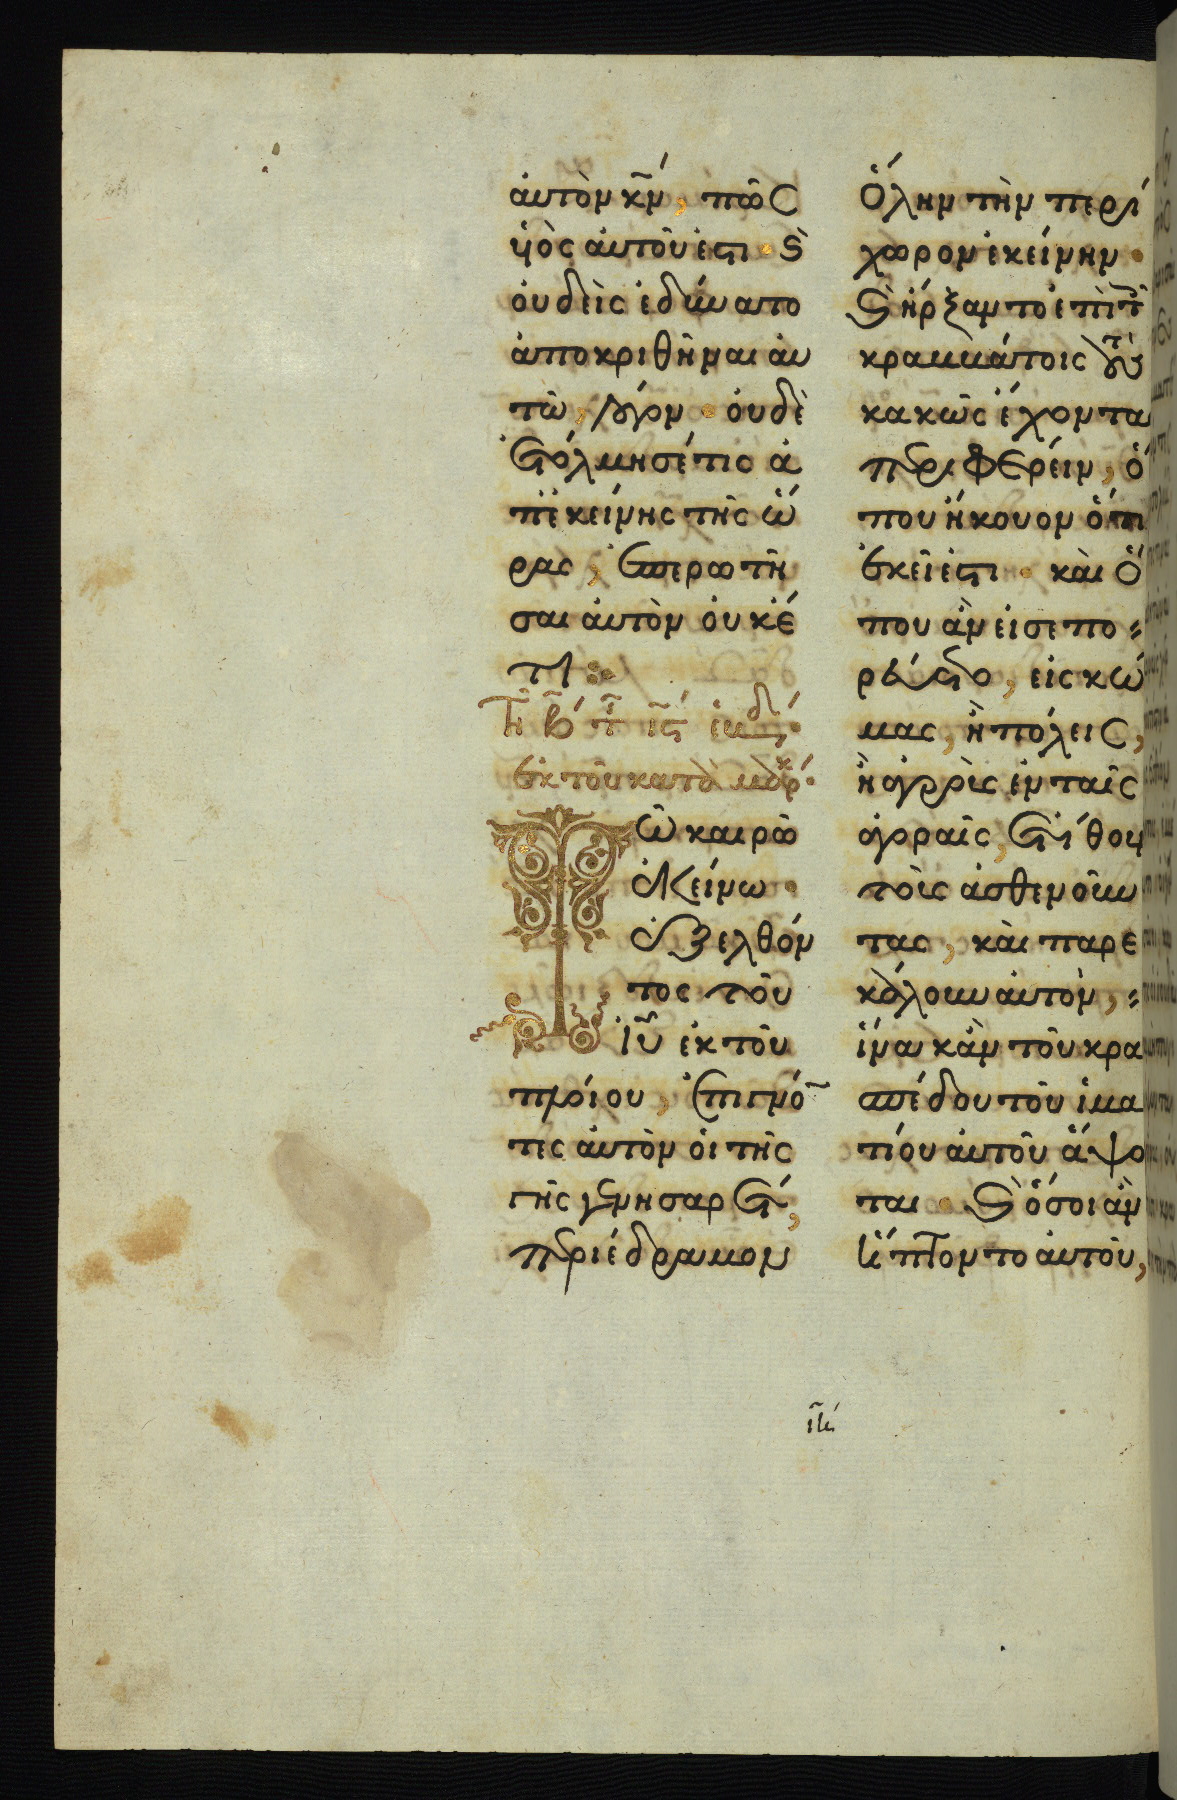 ἀυτὸν κ̅ν́, πῶς
ὑὸς ἀυτοῦ ἐστι · ϗ̀
ὀυδεὶς ἐδύνατο
ἀποκριθῆναι ἀυ
τῶ, λόγον · ὀυδὲ
ἐτόλμησέ τις ἀ
π' ἐκείνης τῆς ὥ
ρας, ἐπερωτῆ
σαι ἀυτὸν ὀυκέ
τι :
Τῆ β́ τ̑ ιϛ̄ ἑβδ́.
ἐκ τοῦ κατὰ μάρκ.
Τῶ καιρῶ
ἐκείνω ·
ἐξελθόν
τος τοῦ
ἰ̅υ̅ ἐκ τοῦ
πλοίου, ἐπιγνό
τες ἀυτὸν ὁι τῆς
γῆς γεννησαρὲτ,
περιέδραμον
ὅλην τὴν περί
χωρον ἐκείνην ·
ϗ̀ ἤρξαντο ἐπὶ τ̑
κραββάτοις τοὺς
κακῶς ἔχοντας
περιφέρειν, ὅ
που ἤκουον ὅτι
ἐκεῖ ἐστι · καὶ ὅ
που ἂν εἰσεπο-
ρεύετο, εἰς κώ
μας, ἢ πόλεις,
ἢ ἀγροὺς ἐν ταῖς
ἀγοραῖς, ἐτίθουν
τοὺς ἀσθενοῦν
τας, καὶ παρε
κάλουν ἀυτὸν, -
ἵνα κἂν τοῦ κρα
σπέδου τοῦ ἱμα
τίου ἀυτοῦ ἅψω
ται · ϗ̀ ὅσοι ἂν
ἥπτοντο ἀυτοῦ,